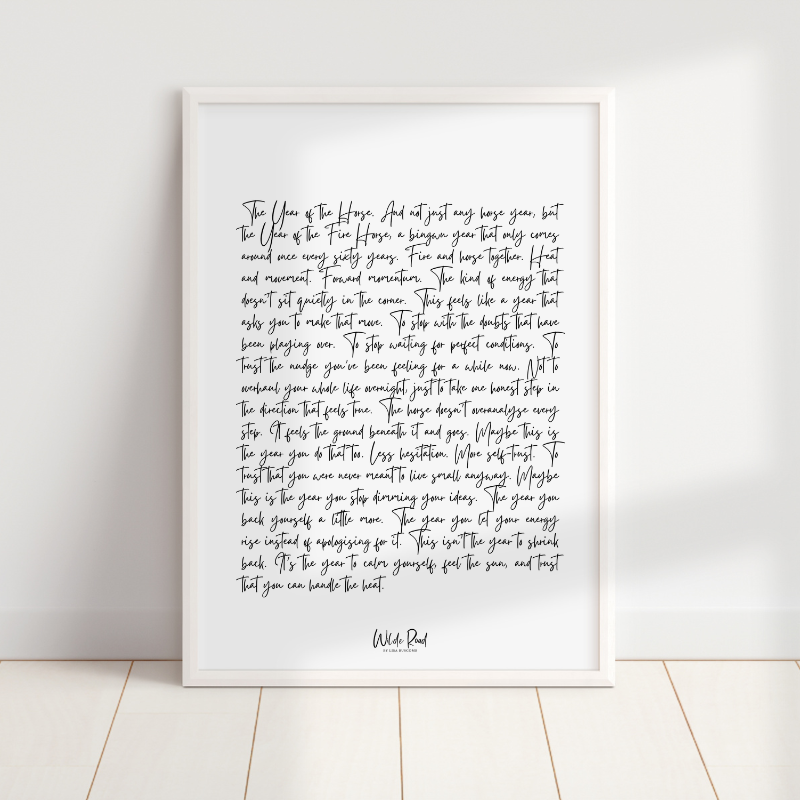 The Year of the Horse. And not just any horse year, but
the Year of the Fire Horse, a bingwu year that only comes
around once every sixty years. Fire and horse together. Heat
and movement. Forward momentum. The kind of energy that
doesn't sit quietly in the corner. This feels like a year that
asks you to make that move. To stop with the doubts that have
been playing over. To stop waiting for perfect conditions. To
trust the nudge you've been feeling for a while now. Not to
overhaul your whole life overnight, just to take one honest step in
the direction that feels true. The horse doesn't overanalyse every
step. It feels the ground beneath it and goes. Maybe this is
the year you do that too. Less hesitation. More self-trust. To
trust that you were never meant to live small anyway. Maybe
this is the year you stop dimming your ideas. The year you
back yourself a little more. The year you let your energy
rise instead of apologising for it. This isn't the year to shrink
back. It's the year to calm yourself, feel the sun, and trust
that you can handle the heat.
Wilde Road